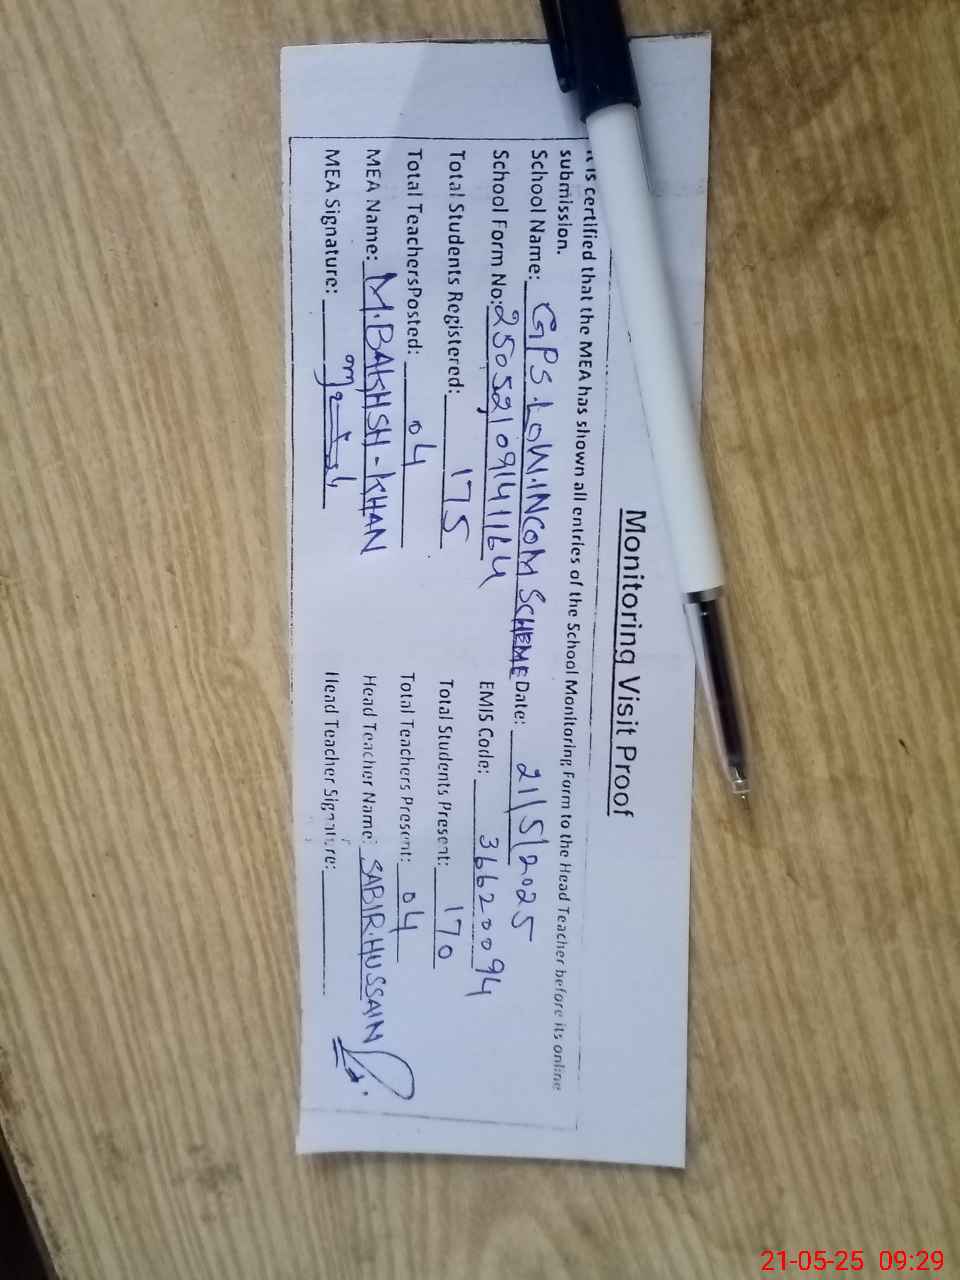 Monitoring Visit Proof
It is certified that the MEA has shown all entries of the School Monitoring Form to the Head Teacher before its online
submission.
School Name: GPS.LOW.INCOM SCHEME Date: 21/5/2025
School Form No: 25052109141164 EMIS Code: 36620094
Total Students Registered: 175 Total Students Present: 170
Total TeachersPosted: 04 Total Teachers Present: 04
MEA Name: M.BAKHSH-KHAN Head Teacher Name: SABIR.HUSSAIN
MEA Signature: Head Teacher Signature:
21-05-25 09:29